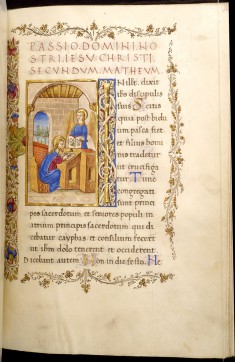 PASSIO DOMINI NO
STRI IESV CHRISTI
SECVNDVM MATHEVM
IN illo. dixit
ihs discipulis
suis Scitis
quia post bidu
um pasca fiet
et filius homi
nis tradetur
ut crucifiga
tur Tunc
congregati
sunt princi
pes sacerdotum et seniores populi in
atrium principis sacerdotum qui di
cebatur cayphas et consilium fecert
ut ihm dolo tenerent et occiderent
Dicebant autem Non in die festo. Ne